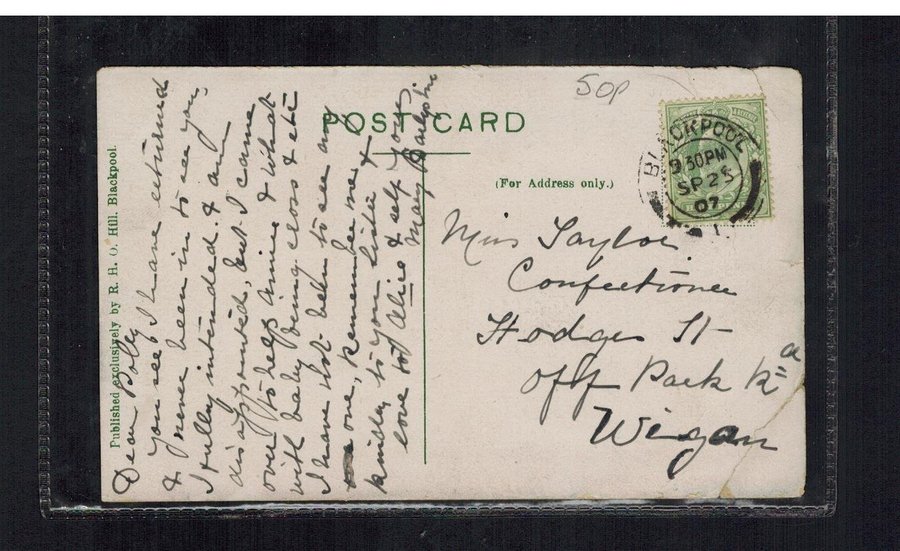 50p
POST CARD
(For Address only.)
BLACKPOOL
9.30PM
SP 25
07
Miss Taylor
Confectioner
Hodges St
Off Park Rd
Wigan
Published exclusively by R. H. O. Hill, Blackpool.
Dear Polly I have returned
you see I have
& never been in to see you,
I fully intended & am
disappointed, but I came
over to help Annie & what
with baby being cross & etc
I have not been to see any
one, Remember me
kindly to your sister &
love to Alice & self from
Mary